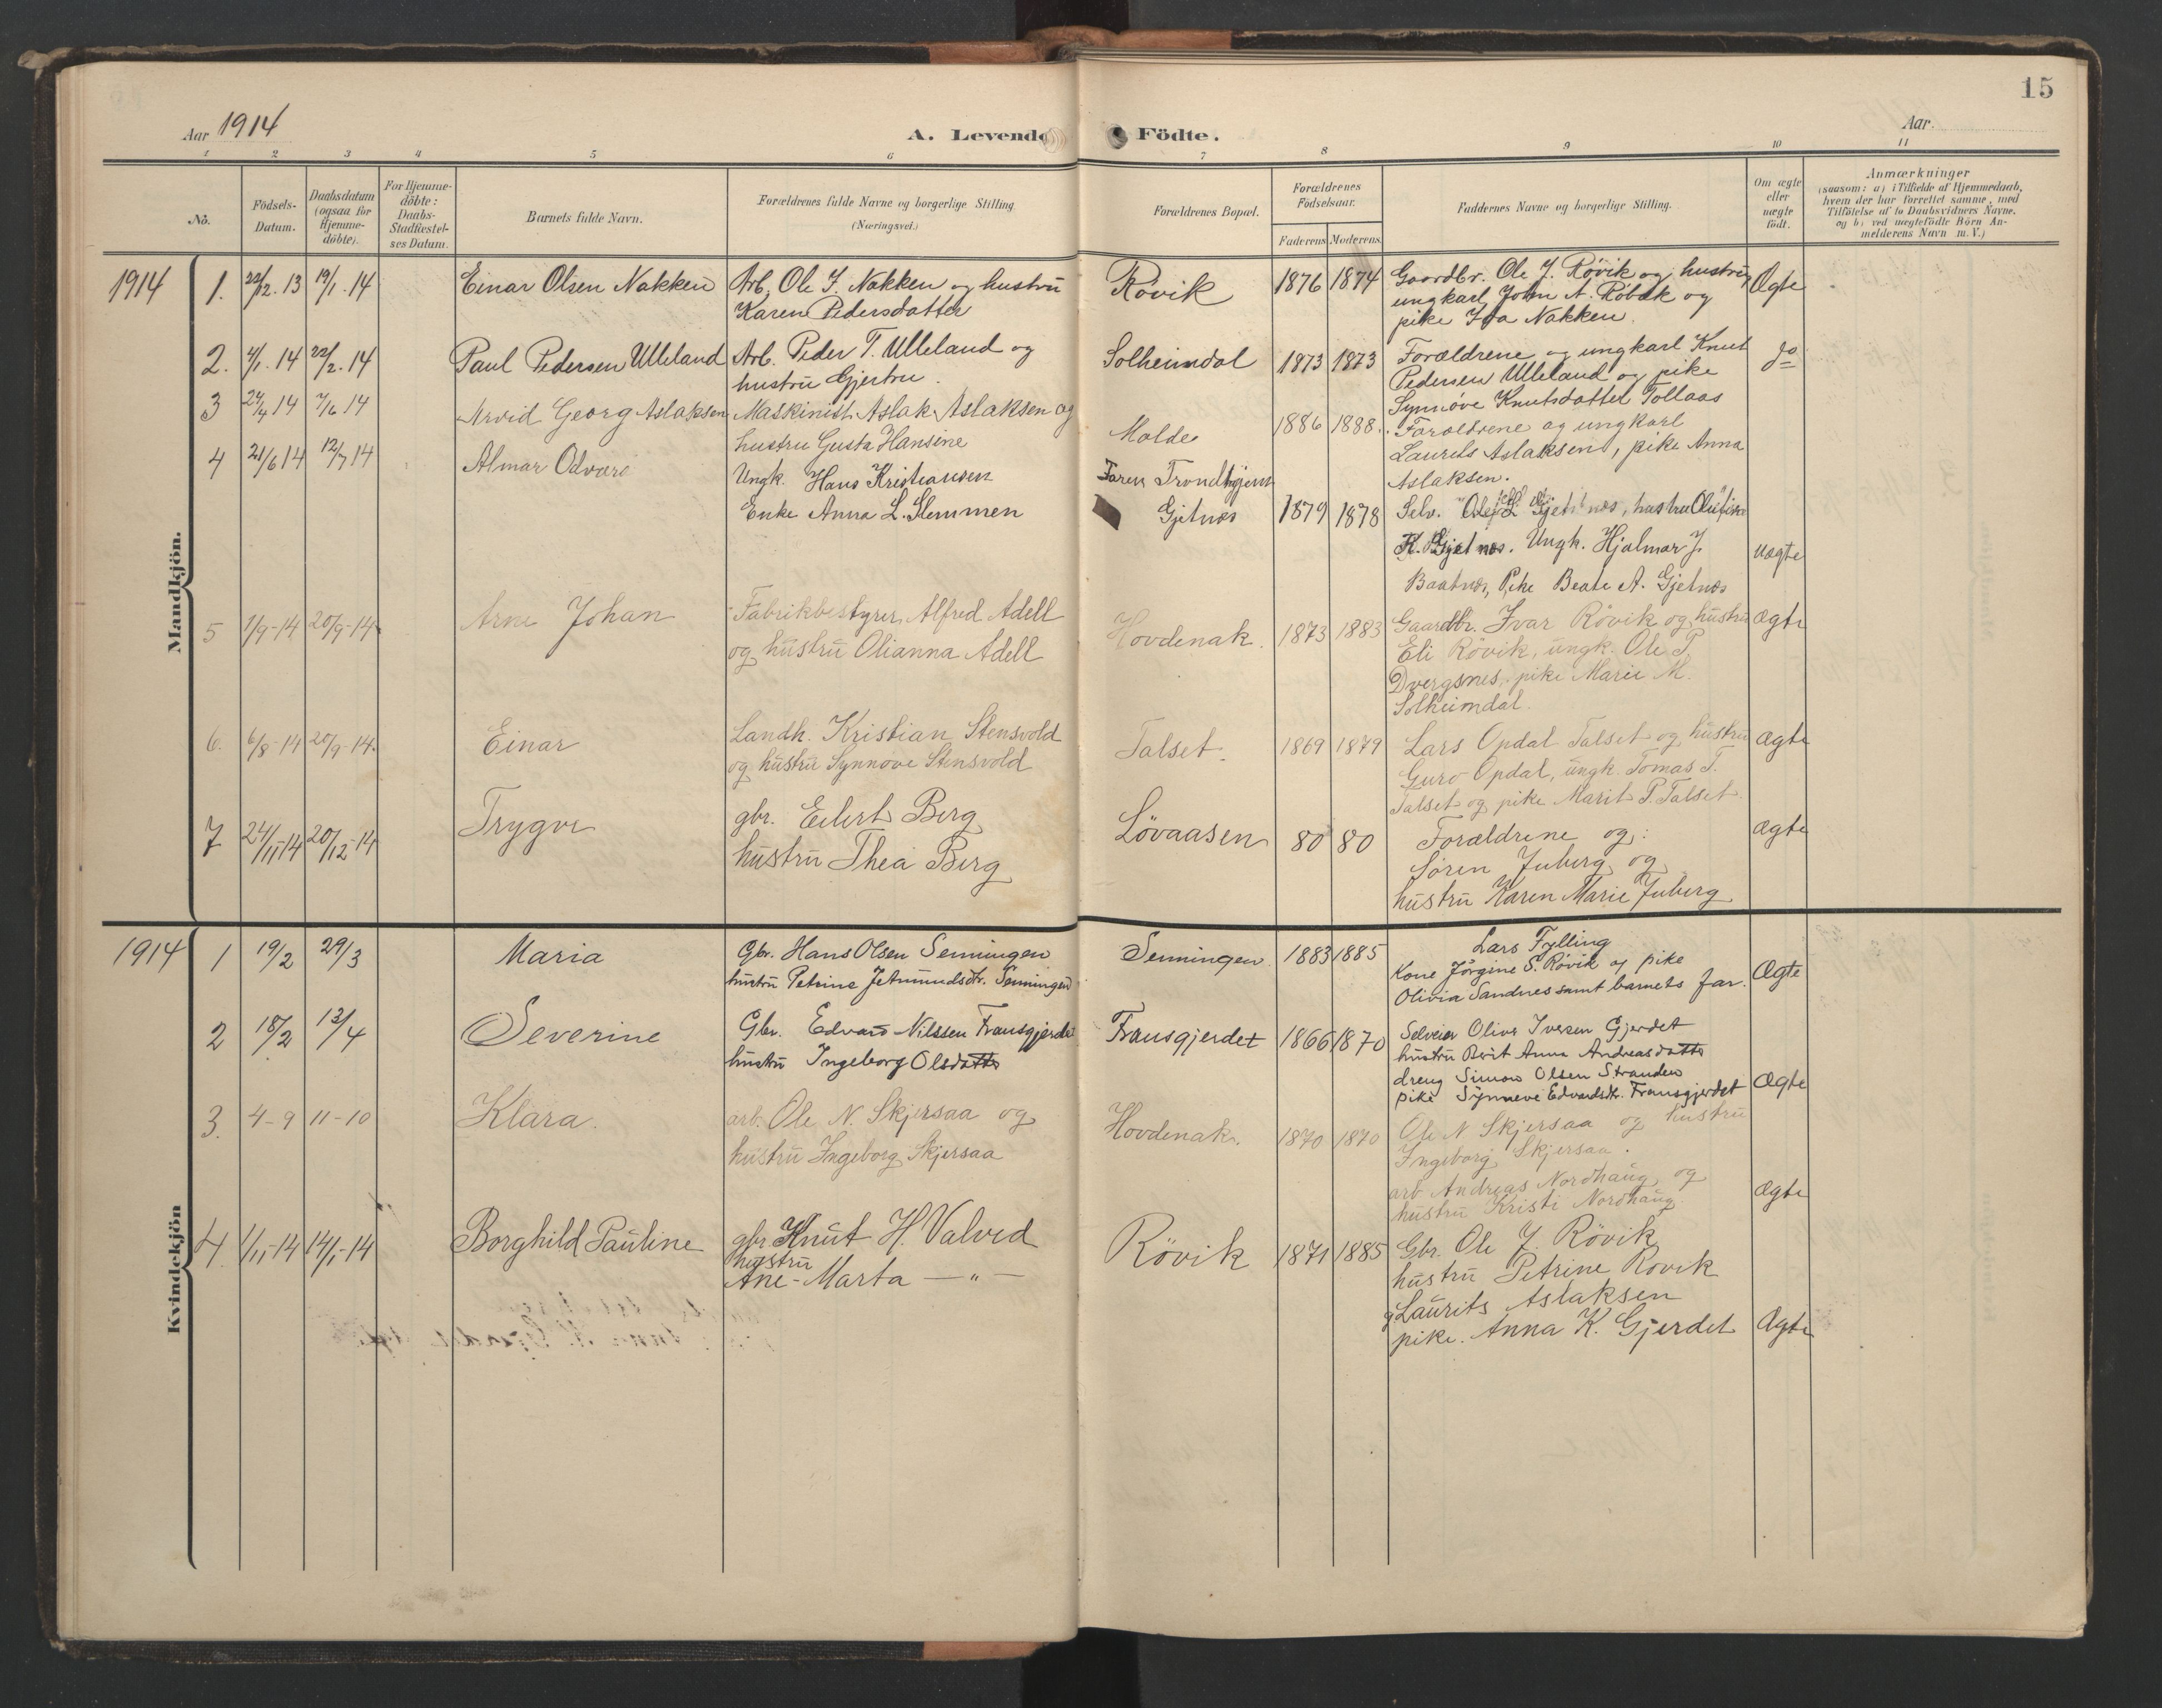 15
Aar 1914
A. Levende Födte.
Aar
1 2 3 4 5 6 7 8 9 10 11
No.
Födsels-Datum.
Daabsdatum (ogsaa for Hjemme-döbte).
For Hjemme-döbte: Daabs-Stadfæstel-ses Datum.
Barnets fulde Navn.
Forældrenes fulde Navne og borgerlige Stilling. (Næringsvei.)
Forældrenes Bopæl.
Forældrenes Födselsaar.
Faderens Moderens
Faddernes Navne og borgerlige Stilling.
Om ægte eller uægte födt.
Anmærkninger
(saasom: a) i Tilfælde af Hjemmedaab,
hvem der har forrettet samme, med
Tilföielse af to Daabsvidners Navne,
og b) ved uægtefödte Börn An-
melderens Navn m. V.)
Mandkjön.
1914 1. 22/12. 13 19/1. 14 Einar Olsen Nakken
Arb. Ole J. Nakken og hustru
Karen Pedersdatter
Rövik 1876 1874
Gaardbr. Ole J. Rövik og hustru,
ungkarl John A. Röbek og
pike Ida Nakken.
Ægte
2. 4/1. 14 22/2. 14 Paul Pedersen Ulleland
Arb. Peder T. Ulleland og
hustru Gjertru.
Solheimdal 1873 1873
Forældrene og ungkarl Knut
Pedersen Ulleland og pike
Synnöve Knutsdatter Tollaas
do
3 24/4 14 7/6 14 Arvid Georg Aslaksen
Maskinist Aslak Aslaksen og
hustru Gusta Hansine
Molde 1886 1888.
Forældrene og ungkarl
Laurits Aslaksen, pike Anna
Aslaksen.
4 21/6 14 12/7 14 Almar Odvard
Ungk. Hans Kristiansen
Enke Anna L. Slemmen
Faren Trondhjem
Gjetnes 1879 1878
Selv. Ole L Gjetnes, hustru Olufine
K. Gjetnes. Ungk. Hjalmar J.
Baatnes, Pike Beate A. Gjetnes
uægte
5 1/9-14 20/9-14 Arne Johan
Fabrikbestyrer, Alfred Adell
og hustru Olianna Adell
Hovdenak. 1873 1883
Gaardbr. Ivar Rövik og hustru
Eli Rövik, ungk. Ole P.
Dvergsnes, pike Marie M.
Solheimdal.
Ægte
6. 6/8-14 20/9-14. Einar
Landh. Kristian Stensvold
og hustru Synnove Stensvold
Talset. 1869 1879
Lars Opdal Talset og hustru
Guro Opdal, ungk. Tomas T.
Talset og pike Marit P. Talset.
Ægte
7 24/11-14 20/12-14 Trygve
gbr. Eilert Berg
hustru Thea Berg
Lövaasen 80 80
Forældrene og:
Sören Juberg og
hustru Karen Marie Juberg
Ægte
Kvindekjön
1914 1 19/2 29/3 Maria
Gbr. Hans Olsen Senningen
hustru Petrine Jetmundsdtr. Senningen
Senningen 1883 1885
Lars Fylling
Kone Jörgine S. Rövik og pike
Olivia Sandnes samt barnets far.
Ægte
2 18/2 13/4 Severine
Gbr. Edvard Nilssen Fransgjerdet
hustru Ingeborg Olsdatter
Fransgjerdet 1866 1870
Selveier Oliver Iversen Gjerdet
hustru Berit Anna Andreasdatter
dreng Simon Olsen Stranden
pike Synneve Edvardsdtr. Fransgjerdet
Ægte
3. 4-9 11-10 Klara.
arb. Ole N. Skjersaa og
hustru Ingeborg Skjersaa
Hovdenak. 1870 1870
Ole N Skjersaa og hustru
Ingeborg Skjersaa.
arb Andreas Nordhaug og
hustru Kristi Nordhaug
Ægte
4. 1/11-14 14/1-14 Borghild Pauline
gbr. Knut H. Valved
hustru
Ane-Marta —"—
Rövik 1871 1885
Gbr. Ole J. Rövik
hustru Petrine Rovik
g Laurits Aslaksen
pike. Anna K. Gjerdet
Ægte